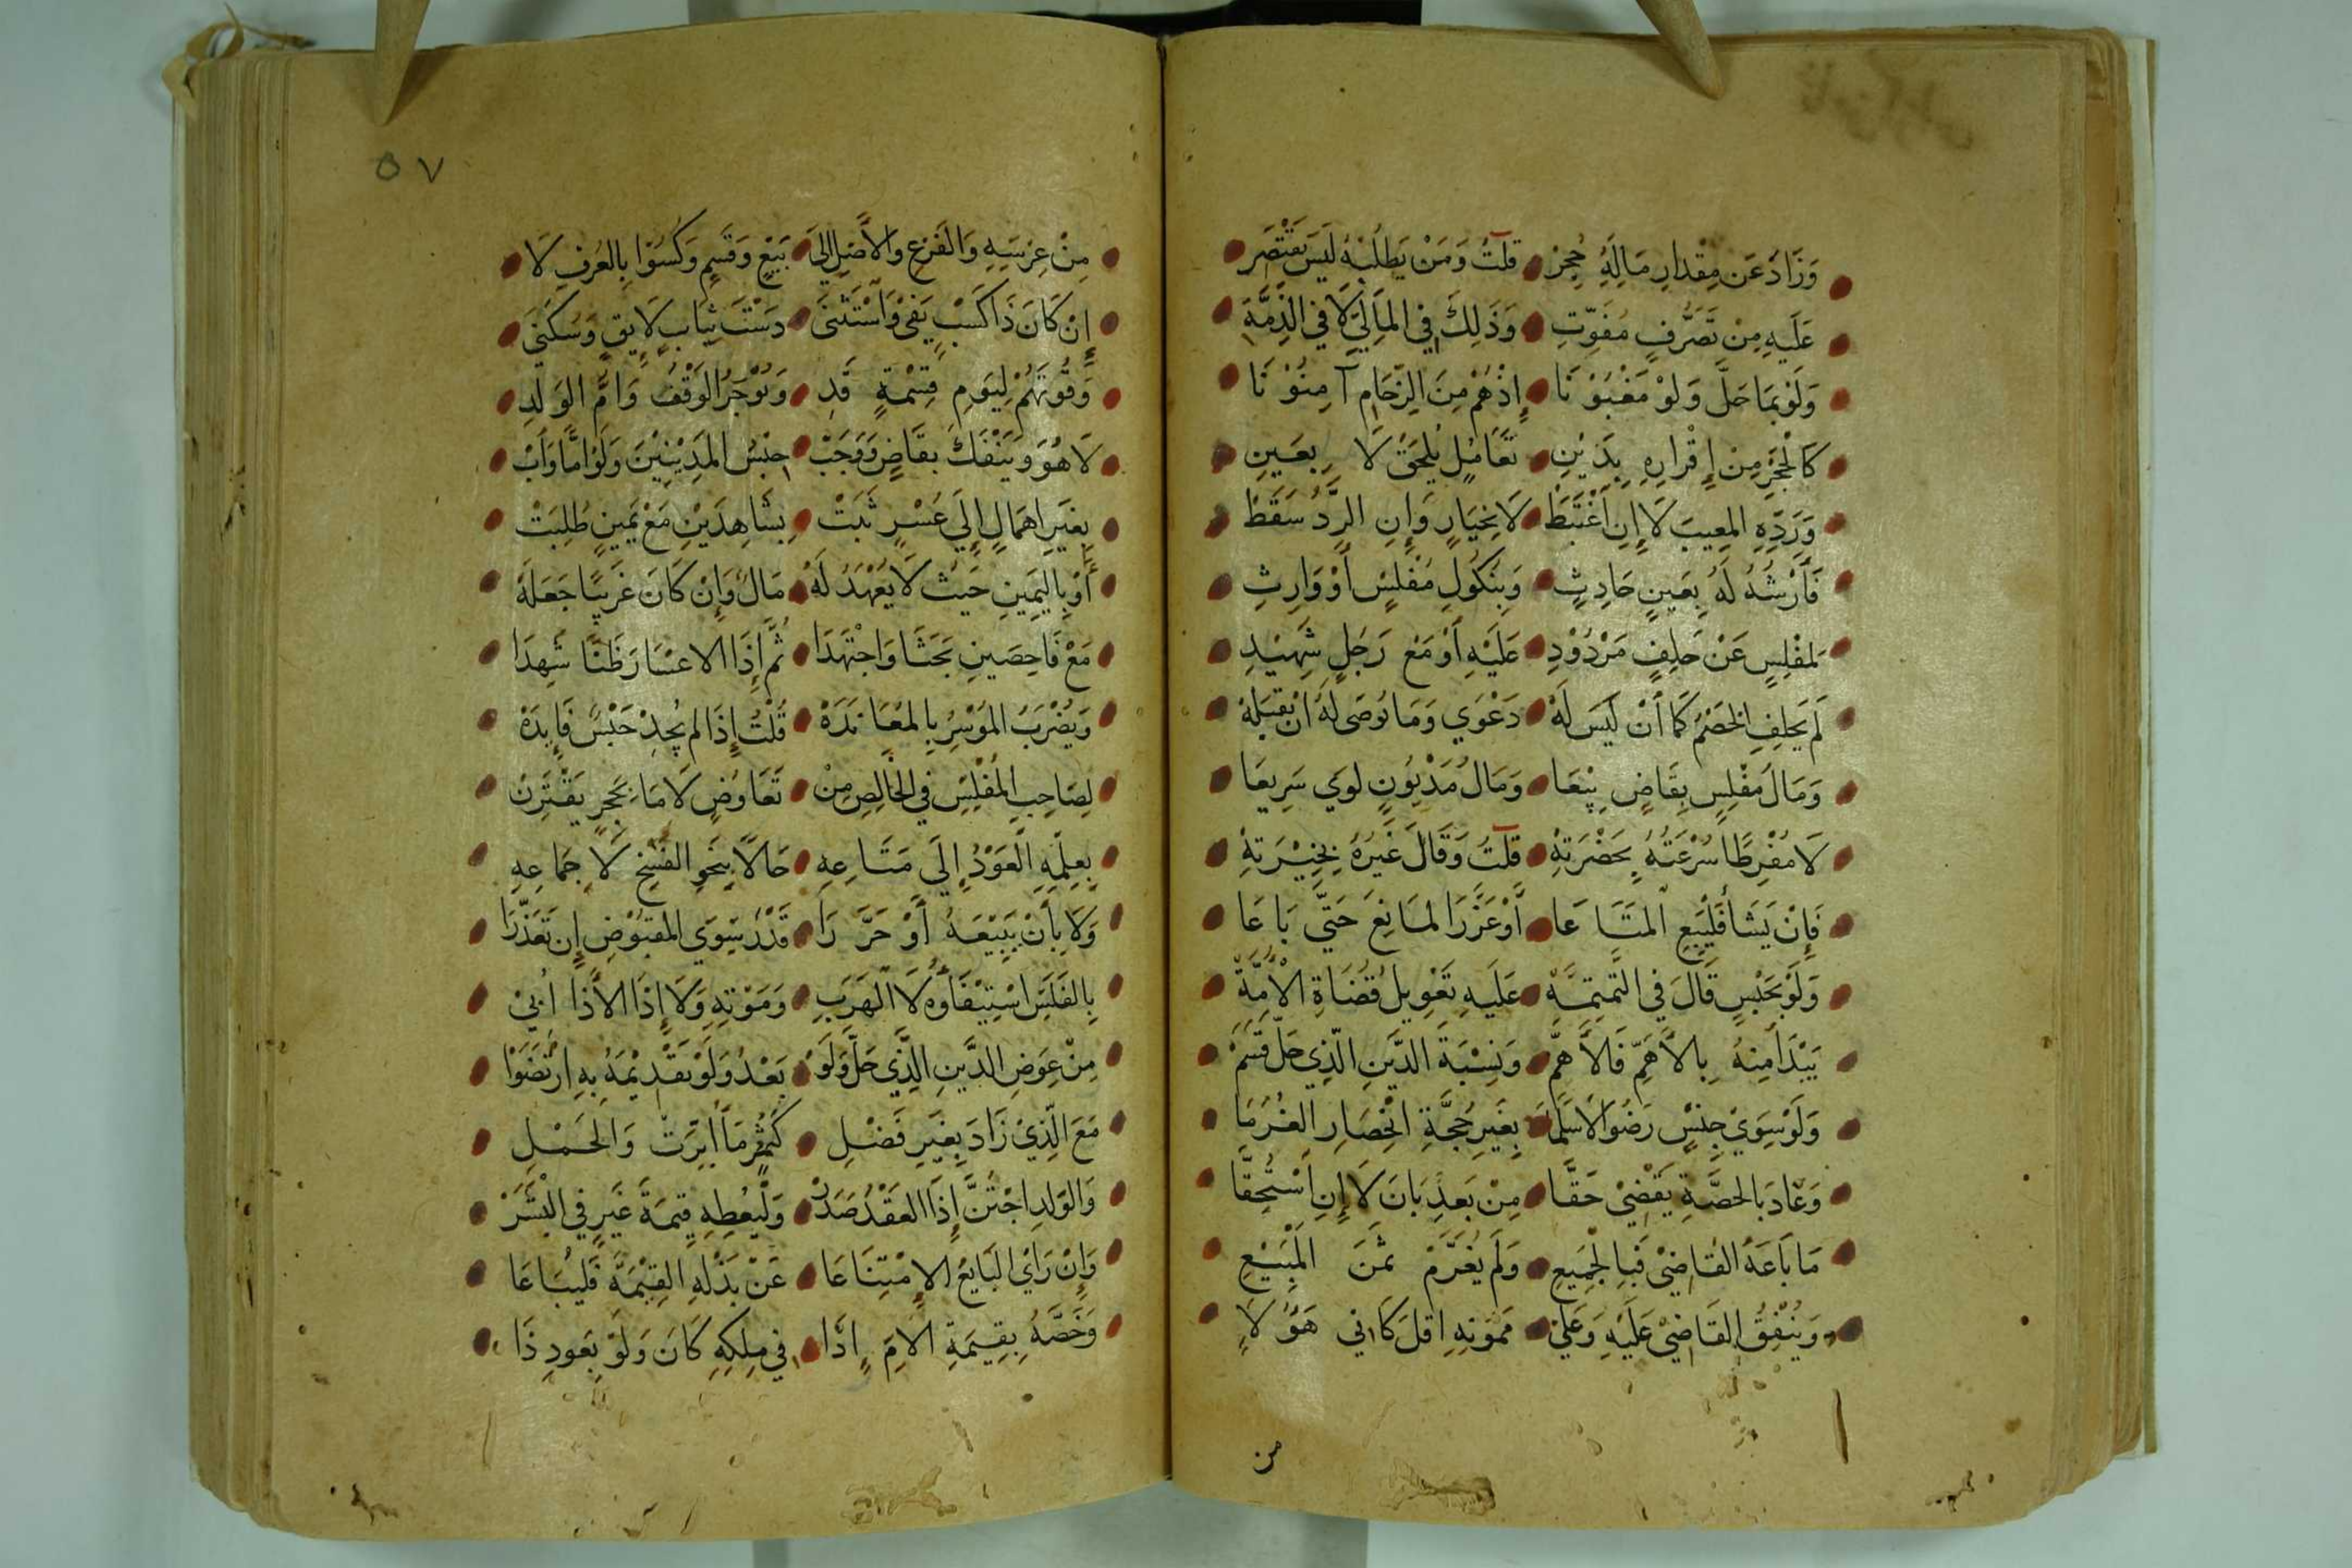 وَزَادَ عَن مِقْدارِ مَالِهُ حُجِرْ قلتُ وَمَنْ يَطلُبْهُ لَيسَ يَقْتَصِر
عَلَيهِ مِنْ تَصَرُّفٍ مُفَوِّتِ وَذَلِكَ في المَالِيِّ لَا في الذِّمَّةِ
وَلَوْ بمَا حَلَّ وَلوْ مَغْبُوْنَا إِذْ هُمْ مِنَ الزِّحَامِ آمِنُوْنَا
كَالحَجْرِ مِنْ إِقْرارِهِ بِدَيْنِ تَعَامُلٍ يُلحَقْ لَا بِعَينِ
وَرَدِّهِ المَعِيبَ لَا إِنِ اغْتَبَطْ لَا بخِيَارٍ وَإِنِ الرَّدُّ سَقَطْ
فَأَرْشُهُ لَهُ بِعَينٍ حَادِثِ وَبِنكُولِ مُفْلِسٍ أَوْ وَارِثِ
لمفْلِسٍ عَنْ حَلِفٍ مَرْدُوْدِ عَلَيْهِ أَوْ مَعْ رَجلٍ شَهِيْدِ
لَم يَحلِفِ الخَصْمُ كَمَا أَنْ لَيسَ لَهْ دَعْوَي وَمَا يُوصَى لَهُ أنْ يقبَلهْ
وَمَالَ مُفْلِسٍ بِقَاضٍ بِيْعَا وَمَالُ مَدْيُونٍ لوي سَرِيعَا
لَا مُفْرِطًا سُرْعَتُهُ بِحَضْرَتِهْ قلتُ وَقَالَ غَيرُهُ بخِيْرَتِهْ
فَإِنْ يَشَأ فَليَبِعِ المتَاعَا أَوْ عَزَّرَ المَانِعَ حَتَّي بَاعَا
وَلَوْ بحَبْسٍ قَالَ في التَّتِمَّةْ عَلَيهِ تَعْوِيلُ قُضَاةِ الأُمَّةْ
يَبْدَأُ مِنهُ بِالأَهَمِّ فَالأَهَمّ وَنِسْبَةَ الدَّينِ الّذِي حَلَّ قَسَمْ
وَلَوْ سِوَيْ جِنْسٍ رَضُوا لا سَلَمَا بِغَيرِ حُجَّةِ انْحِصَارِ الغُرَمَا
وَعَادَ بَالحصَّةِ يَقْضِيْ حَقَّا مِنْ بَعدِ بَانَ لَا إِنِ اسْتُحِقَّا
مَا بَاعَهُ القَاضِيْ فَبِالجَمِيعِ وَلَم يُغَرَّمْ ثمَنَ المَبِيْعِ
وَيُنْفِقُ القَاضِيْ عَلَيْهِ وَعَلَى مَمُونِهِ اقلَّ كَافي هَؤُلَا
من
٥٧
مِنْ عِرْسِهِ وَالفَرْعِ والأَصْلِ إلَى بَيْعٍ وَقَسْمٍ وَكُسُوْا بِالعُرْفِ لَا
إِنْ كَانَ ذَا كَسْبٍ يَفِي وَاسْتَثْنَى دَسْتَ ثِيَابٍ لَايِقٍ وَسُكنَى
وَقُوْتَهُمْ لِيَومِ قِسْمَةٍ قَدِ وَيُوْجَرُ الوَقْفُ وَامُّ الوَلَدِ
لَا هُوَ وَيَنْفَكُّ بقَاضٍ وَوَجَبْ حَبْسُ المَدِيْنِيْنَ وَلَوْ امًّا وَأَبْ
بِغَيرِ اهمَالٍ إِلَي عُسْرٍ ثَبَتْ بِشَاهِدَيْنِ مَعْ يَمِينٍ طُلِبَتْ
أَوْ بِاليَمِينِ حَيثُ لَا يُعْهَدُ لَهْ مَالٌ وَإِنْ كَانَ غَرِيبًا جَعَلَهْ
مَعْ فَاحِصَينِ بَحَثَا وَاجْتَهَدَا ثُمَّ إِذَا الاعسَارَ ظَنَّا شَهِدَا
وَيُضْرَبُ المُوْسِرُ بِالمعَانَدَهْ قُلْتُ إِذَا لم يُجِدْ حَبْسٌ فَايِدَهْ
لِصَاحِبِ المُفْلِسِ في الخَالِصِ مِنْ تَعَاوُضٍ لَا مَا بحَجرٍ يَقْتَرِنْ
بِعِلْمِهِ العَوْدُ إِلَي مَتَاعِهِ حَالًا بِنَحوِ الفَسْخِ لَا جمَاعِهِ
وَلَا بأَنْ يَبِيْعَهُ أَوْ حَرَّرَا قَدْرَ سِوَي المَقبُوْضِ إِن تَعَذَّرَا
بِالفَلَسِ اسْتِيْفَاؤُهُ لَا الهَرَبِ وَمَوْتِهِ وَلَا إِذَا الأَدَا أُبِيْ
مِنْ عِوَضِ الدَّينِ الَّذِّي حَلَّ وَلَوْ بَعْدُ وَلَوْ تَقْدِيمَهُ بِهِ ارْتَضَوْا
مَعَ الَّذِيْ زَادَ بِغَيرِ فَضْلِ كَثَمَرٍ مَا أُبِّرَتْ وَالحَمْلِ
وَالوَلدِ اجْتُنَّ إِذَا العَقْدُ صَدَرْ وَلْيُعْطِهِ قِيمَةَ غَيرٍ في البَشَرْ
وَإِنْ رَأَي البَايِعُ الامْتِنَاعَا عَنْ بَذْلِهِ القِيْمَةَ فَليُبَاعَا
وَخَصَّهُ بِقِيمَةِ الأُمِّ اذَا في مِلكِهِ كَانَ وَلَوْ بِعَودِ ذَا